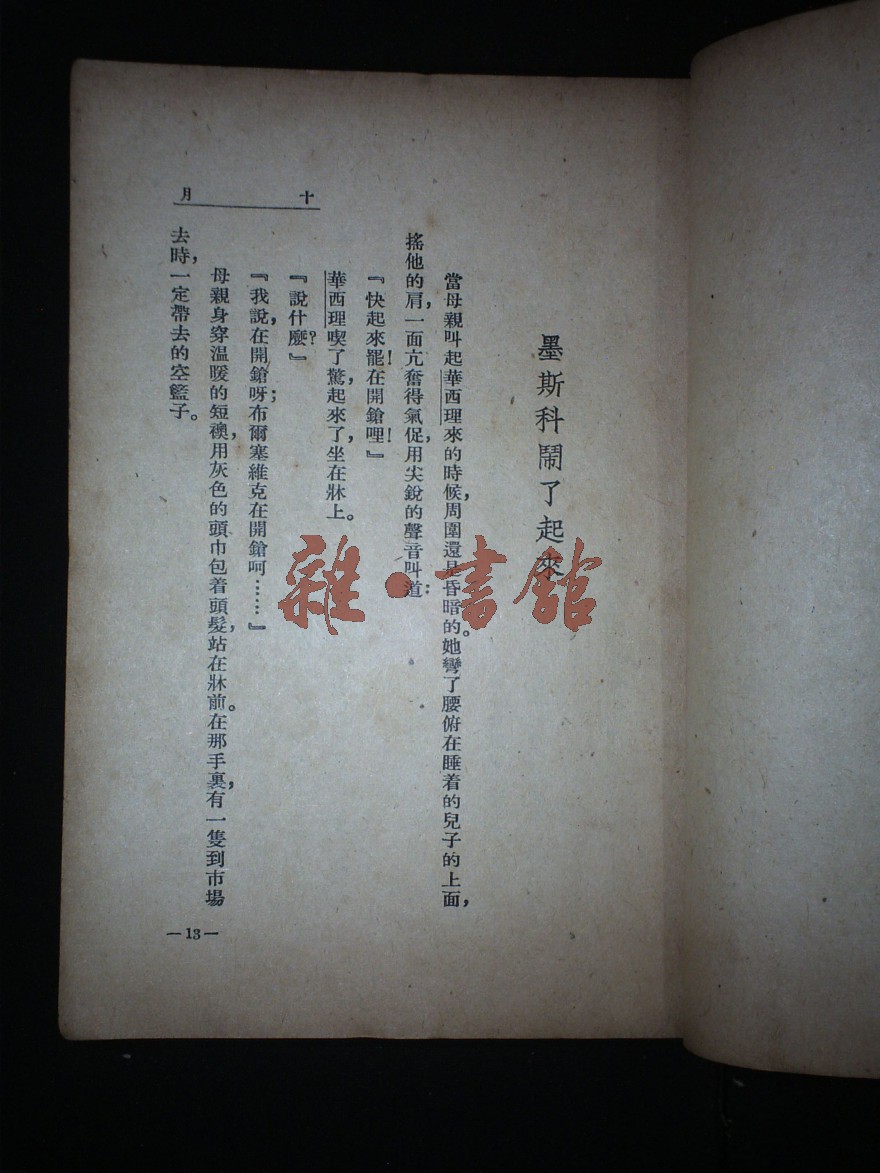 十月
墨斯科鬧了起來
當母親叫起華西理來的時候，周圍還是昏暗的。她彎了腰俯在睡着的兒子的上面，
搖他的肩，一面亢奮得氣促，用尖銳的聲音叫道：
『快起來罷！在開鎗哩！』
華西理喫了驚，起來了，坐在牀上。
『說什麼？』
『我說，在開鎗呀；布爾塞維克在開鎗呵……』
母親身穿溫暖的短襖，用灰色的頭巾包着頭髮，站在牀前。在那手裏，有一隻到市場
去時，一定帶去的空籃子。
—13—
雜·書館